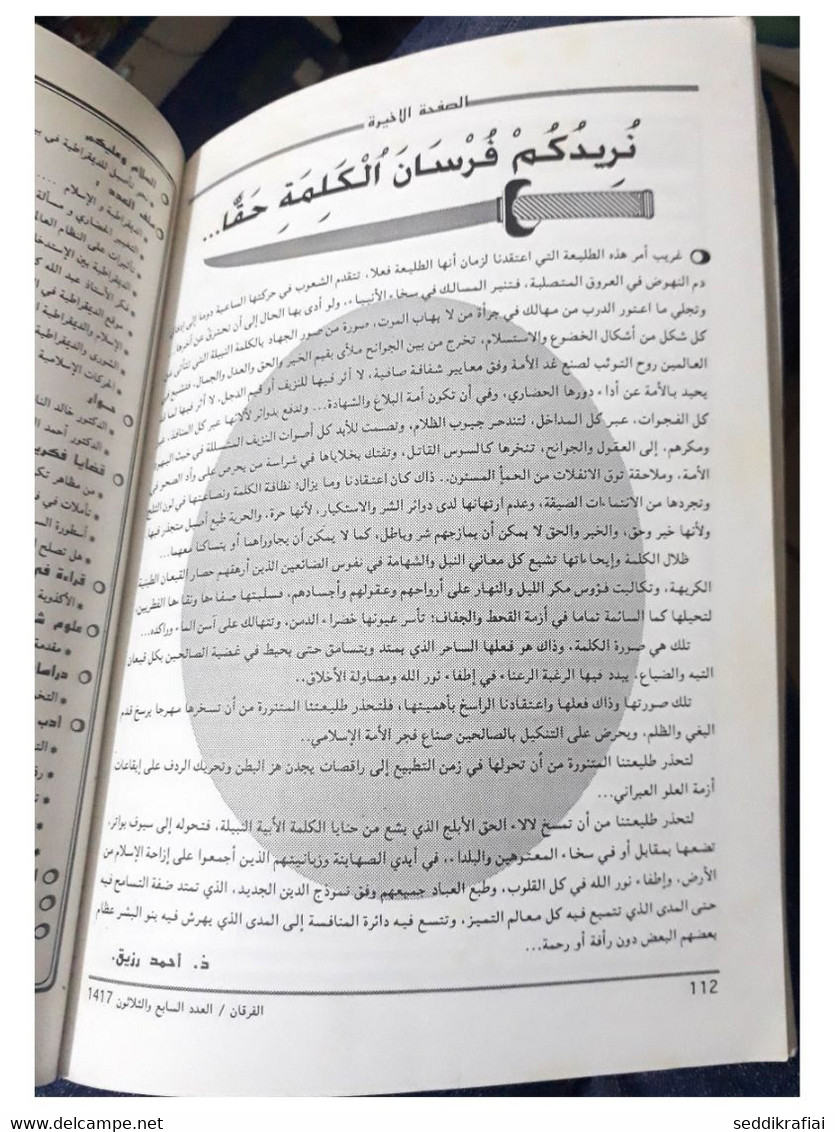 الصفحة الاخيرة
نُرِيدُكُمْ فُرْسَانَ ٱلْكَلِمَةِ حَقًّا...
غريب أمر هذه الطليعة التي اعتقدنا لزمان أنها الطليعة فعلا، تتقدم الشعوب في حركتها الساعية دوما إلى
دم النهوض في العروق المتصلبة، فتنير المسالك في سخاء الأنبياء، ولو أدى بها الحال إلى أن تحترق عن آخرها
وتجلي ما اعتور الدرب من مهالك في جرأة من لا يهاب الموت، صورة من صور الجهاد بالكلمة النبيلة التي تتأتى
كل شكل من أشكال الخضوع والاستسلام، تخرج من بين الجوانح ملأى بقيم الخير والحق والعدل والجمال،
العالمين روح التوثب لصنع غد الأمة وفق معايير شفافة صافية، لا أثر فيها للنزيف أو قيم الدجل، لا أثر فيها
يحيد بالأمة عن أداء دورها الحضاري، وفي أن تكون أمة البلاغ والشهادة... وتدفع بدوائر لألائها عبر كل المنافذ،
كل الفجوات، عبر كل المداخل، لتندحر جيوب الظلام، وتصمت للأبد كل أصوات النزيف المتسللة في خبث
ومكرهم، إلى العقول والجوانح، تنخرها كالسوس القاتل، وتفتك بخلاياها في شراسة من يحرص على وأد الصحو في
الأمة، وملاحقة توق الانفلات من الحمأ المسنون.. ذاك كان اعتقادنا وما يزال؛ نظافة الكلمة ونصاعتها في لون الثلج
وتجردها من الانتماءات الضيقة، وعدم ارتهانها لدى دوائر الشر والاستكبار، لأنها حرة، والحرية طبع أصيل متجذر فيها
ولأنها خير وحق، والخير والحق لا يمكن أن يمازجهم شر وباطل، كما لا يمكن أن يجاوراهما أو يتساكنا معهما...
ظلال الكلمة وإيحاءاتها تشيع كل معاني النبل والشهامة في نفوس الضائعين الذين أرهقهم حصار القيعان الطينية
الكريهة، وتكالبت فؤوس مكر الليل والنهار على أرواحهم وعقولهم وأجسادهم، فسلبتها صفاءها ونقاءها الفطريين،
لتحيلها كما السائمة تماما في أزمة القحط والجفاف؛ تأسر عيونها خضراء الدمن، وتتهالك على آسن الماء وراكده...
تلك هي صورة الكلمة، وذاك هو فعلها الساحر الذي يمتد ويتسامق حتى يحيط في غضبة الصالحين بكل قيعان
التيه والضياع، يبدد فيها الرغبة الرعناء في إطفاء نور الله ومصاولة الأخلاق..
تلك صورتها وذاك فعلها واعتقادنا الراسخ بأهميتها، فلتحذر طليعتنا المتنورة من أن تسخرها مهرجا يرسخ قدم
البغي والظلم، ويحرض على التنكيل بالصالحين صناع فجر الأمة الإسلامي..
لتحذر طليعتنا المتنورة من أن تحولها في زمن التطبيع إلى راقصات يجدن هز البطن وتحريك الردف على إيقاعات
أزمة العلو العبراني...
لتحذر طليعتنا من أن تمسخ لالاء الحق الأبلج الذي يشع من حنايا الكلمة الأبية النبيلة، فتحوله إلى سيوف بواتر،
تضعها بمقابل أو في سخاء المعتوهين والبلداء، في أيدي الصهاينة وزبانيتهم الذين أجمعوا على إزاحة الإسلام من
الأرض، وإطفاء نور الله في كل القلوب، وطبع العباد جميعهم وفق نموذج الدين الجديد، الذي تمتد ضفة التسامح فيه
حتى المدى الذي تتميع فيه كل معالم التميز، وتتسع فيه دائرة المنافسة إلى المدى الذي يهرش فيه بنو البشر عظام
بعضهم البعض دون رأفة أو رحمة...
ذ. أحمد رزيق.
112
الفرقان / العدد السابع والثلاثون 1417
ملف العدد :
الديمقراطية و الإسلام ....
التغيير الحضاري و مسألة
تأثيرات على النظام
الديمقراطية بين
فكر الأستاذ عبد الله
موقع الديمقراطية في
الإسلام والديمقراطية
الشورى والديمقراطية
الحركات الإسلامية
حوار
الدكتور خالد
الدكتور أحمد
قضايا فكرية
من مظاهر
تأملات في
أسطورة
هل تصلح
قراءة في
علوم
مقدمة
أدب
delcampe.net
seddikrafiai